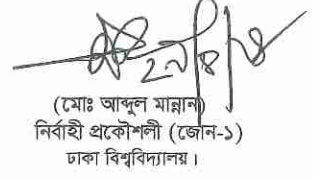 (মোঃ আব্দুল মান্নান)
নির্বাহী প্রকৌশলী (জোন-১)
ঢাকা বিশ্ববিদ্যালয়।